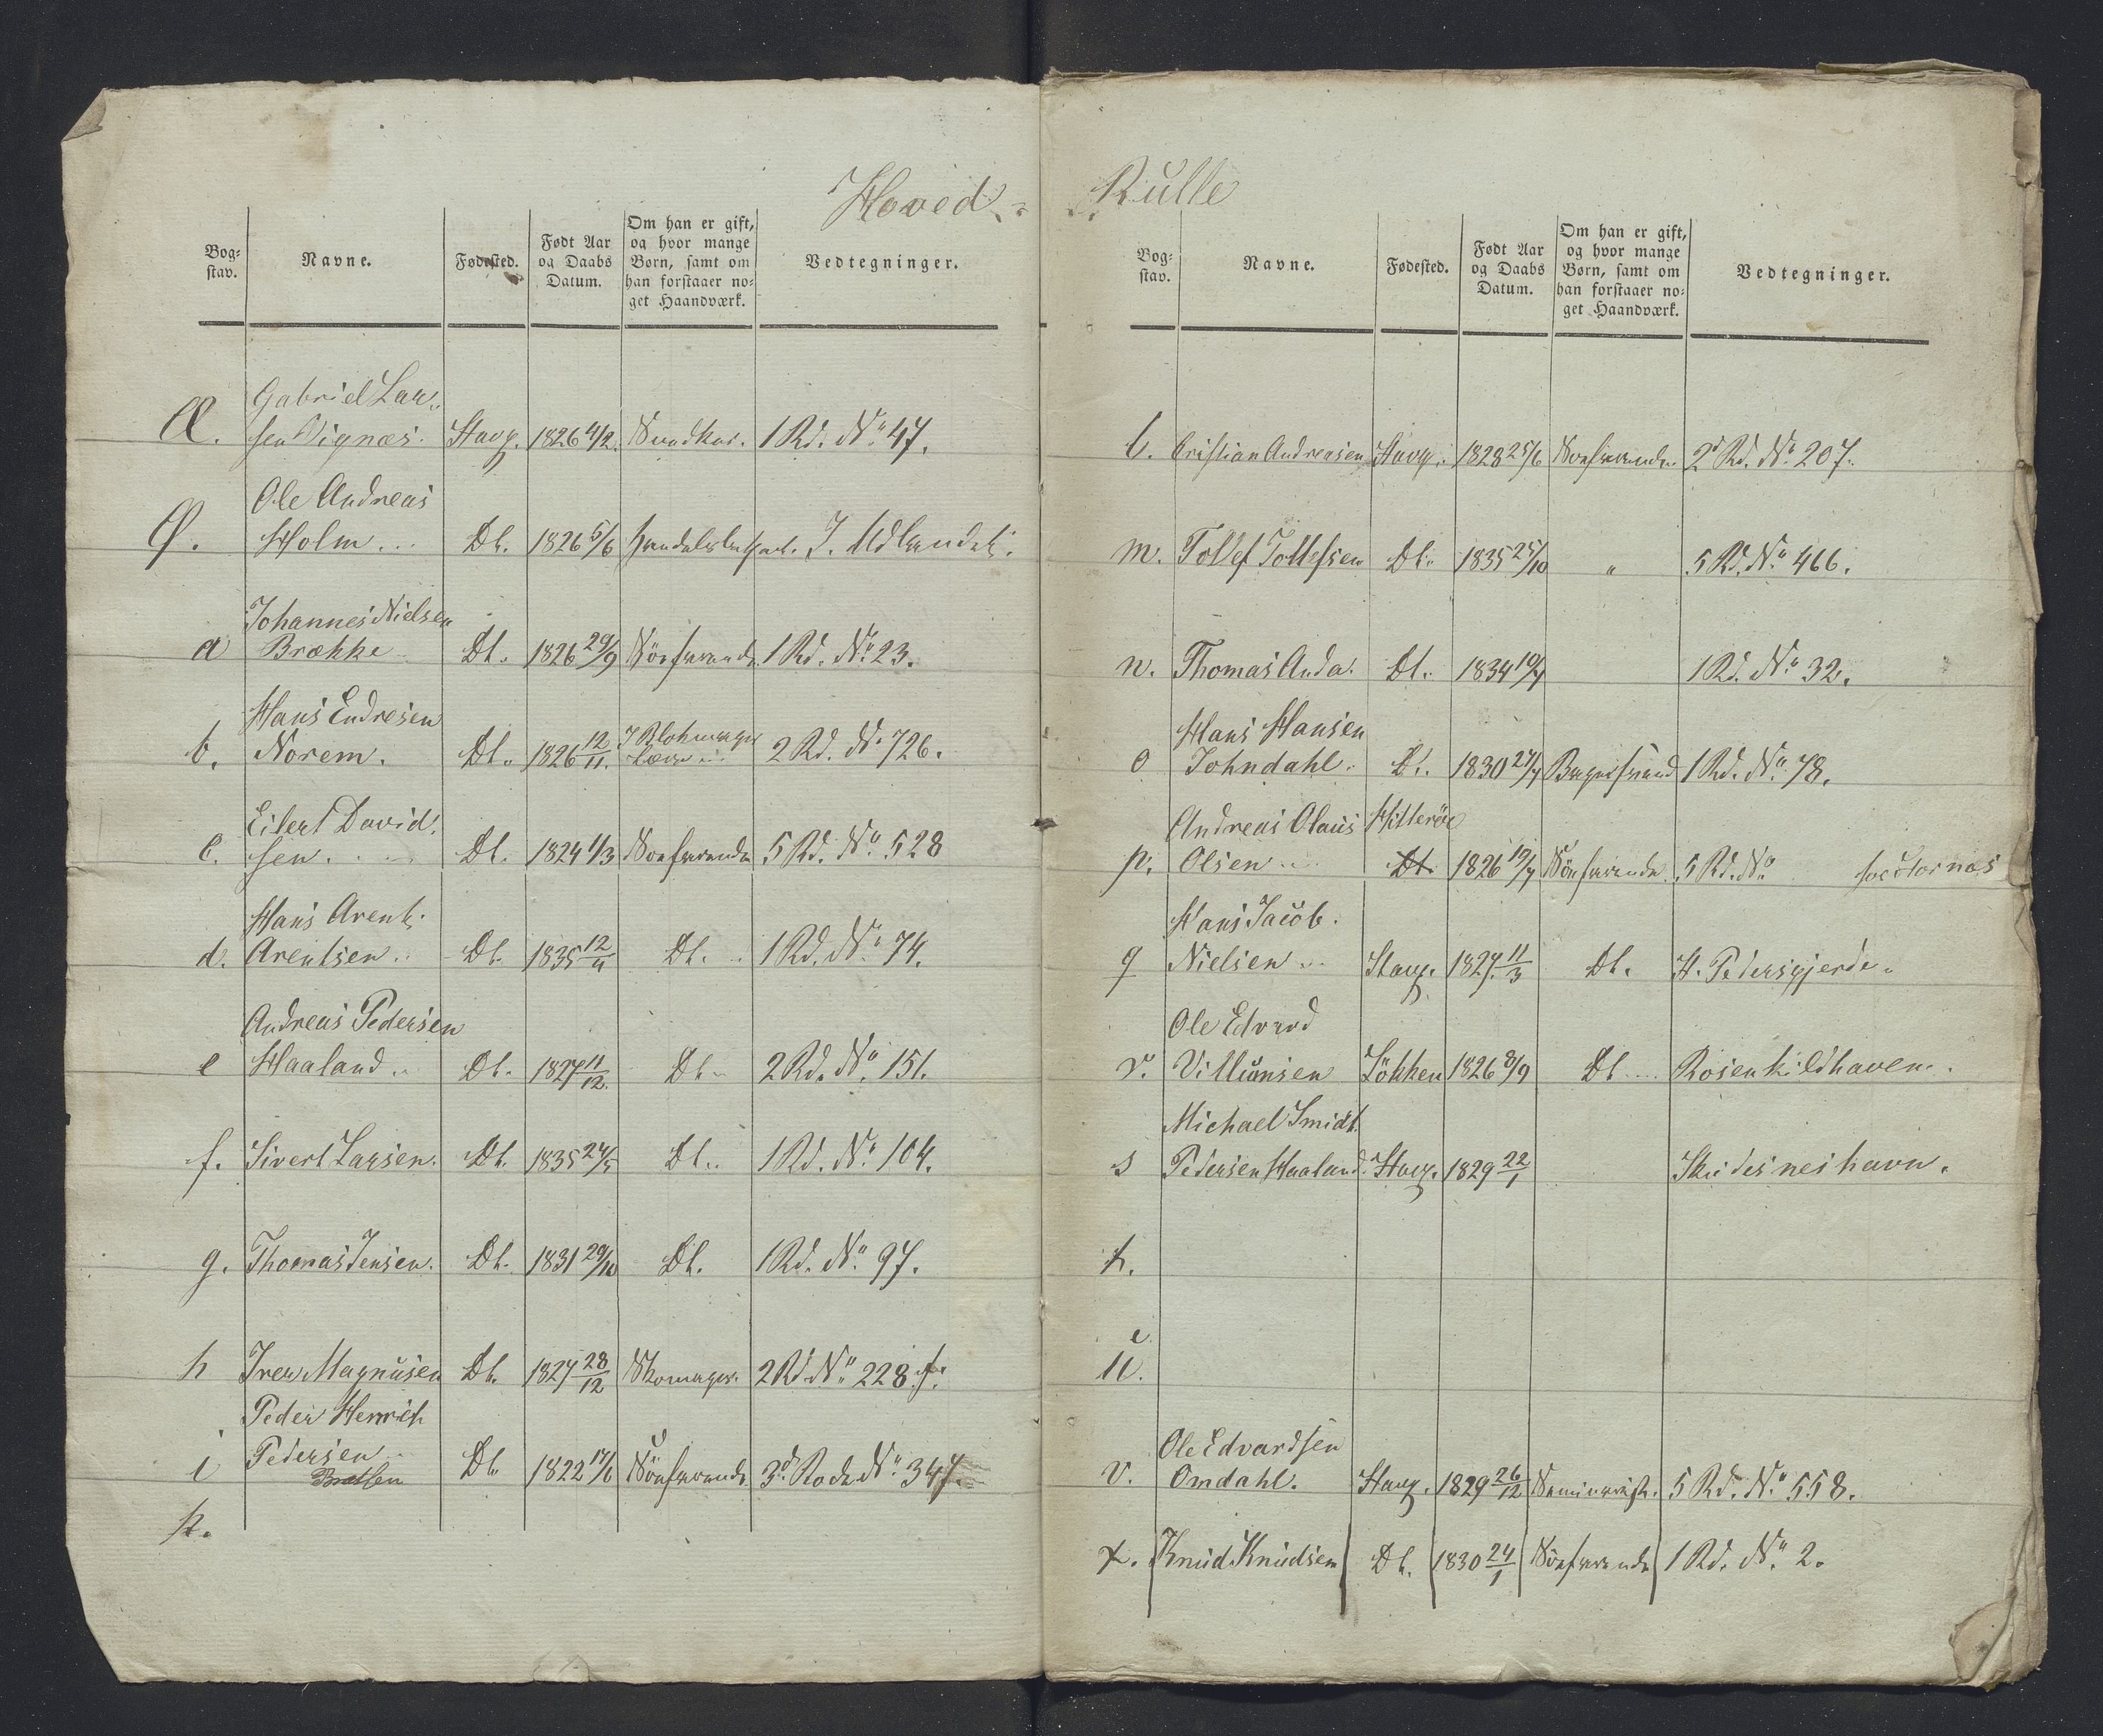 Hoved-
Bog-
stav.
Navne.
Fødested.
Født Aar
og Daabs
Datum.
Om han er gift,
og hvor mange
Børn, samt om
han forstaaer no-
get Haandværk.
Vedtegninger.
Æ. Gabriel Lar-
sen Vignæs. Stavg. 1826 4/2. 1 Rd. No. 47.
Ø. Ole Andreas
Holm... Dt. 1826 5/6 I Udlandet.
a Johannes Nielsen
Brække Dt. 1826 29/9 Söefarende 1 Rd. No. 23.
b. Hans Endresen
Norem. Dt. 1826 12/11. 2 Rd. No. 726.
c. Eilert David-
sen. Dt. 1824 1/3 Söefarende 5 Rd. No. 528
d. Hans Arent
Arentsen.. Dt. 1835 12/4 Dt. 1 Rd. No. 74.
e Andreas Pedersen
Haaland.. Dt. 1827 11/12. Dt. 2 Rd. No. 151.
f. Sivert Larsen. Dt. 1835 24/5 Dt.. 1 Rd. No. 104.
g. Thomas Jensen. Dt. 1831 29/10 Dt. 1 Rd. No. 97.
h Iver Magnusen Dt. 1827 28/12 Skomager. 2 Rd. No. 228.
i Peder Henrich
Pedersen Dt. 1822 17/6 Söefarende 3d Rode No. 347.
k.
Rulle
Bog-
stav.
Navne.
Fødested.
Født Aar
og Daabs
Datum.
Om han er gift,
og hvor mange
Børn, samt om
han forstaaer no-
get Haandværk.
Vedtegninger.
l. Cristian Andreasen Stavg. 1828 25/6 Söefarende 2d Rd. No. 207.
m. Tollef Tollefsen Dt. 1835 25/10 " 5 Rd. No. 466.
n. Thomas Anda. Dt. 1834 10/4 1 Rd. No. 32.
o Hans Hansen
Johndahl. Dt. 1830 27/7 Bagersvend 1 Rd. No. 78.
p. Andreas Olaus Hitteröe
Olsen... Dt. 1826 19/7 Söefarende 5 Rd. No.
q Hans Jacob
Nielsen.. Stavg. 1827. 11/3 Dt. H. Pedersgjerde.
r. Ole Edvard
Villumsen Lökken 1826 8/9 Dt.... Rosenkildhaven.
s Michael Smidt
Pedersen Haaland. Stavg. 1829 22/1 Skudesneshavn.
t.
u.
v. Ole Edvardsen
Omdahl. Stavg. 1829 26/12 Seminarist. 5 Rd. No. 558.
x. Knud Knudsen Dt. 1830 24/1 Söefarende 1 Rd. No. 2.